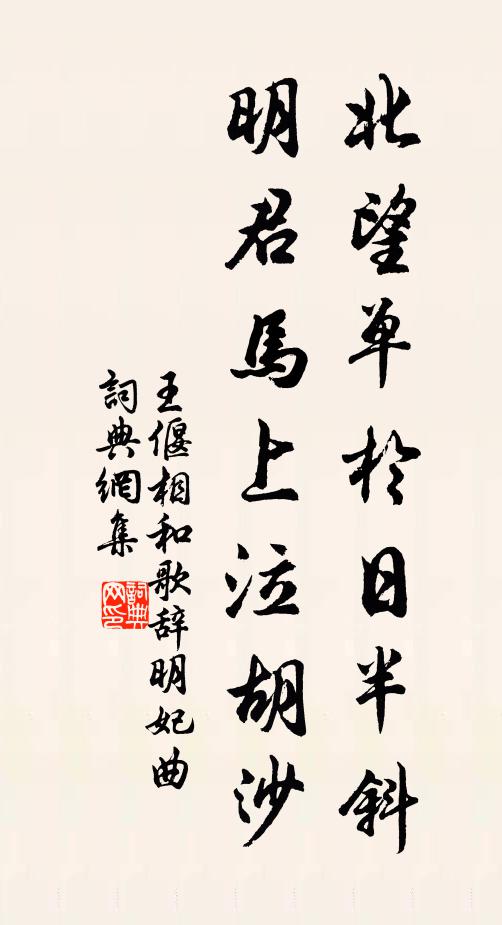 北望单於日半斜
明君馬上泣胡沙
王偃相和歌辞明妃曲
詞典網集
詞典网印